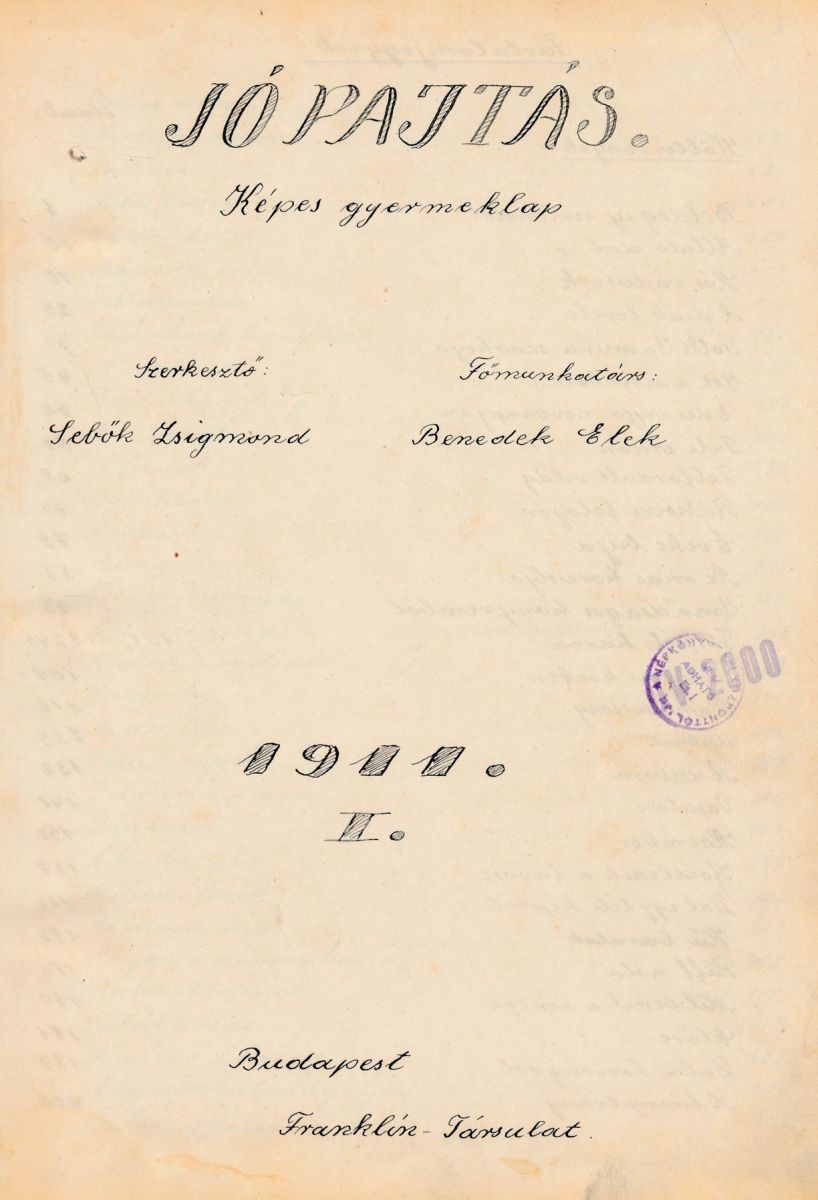 JÓ PAJTÁS.
Képes gyermeklap
Szerkesztő: Főmunkatárs:
Sebők Zsigmond Benedek Elek
1911.
II.
Budapest
Franklin-Társulat.